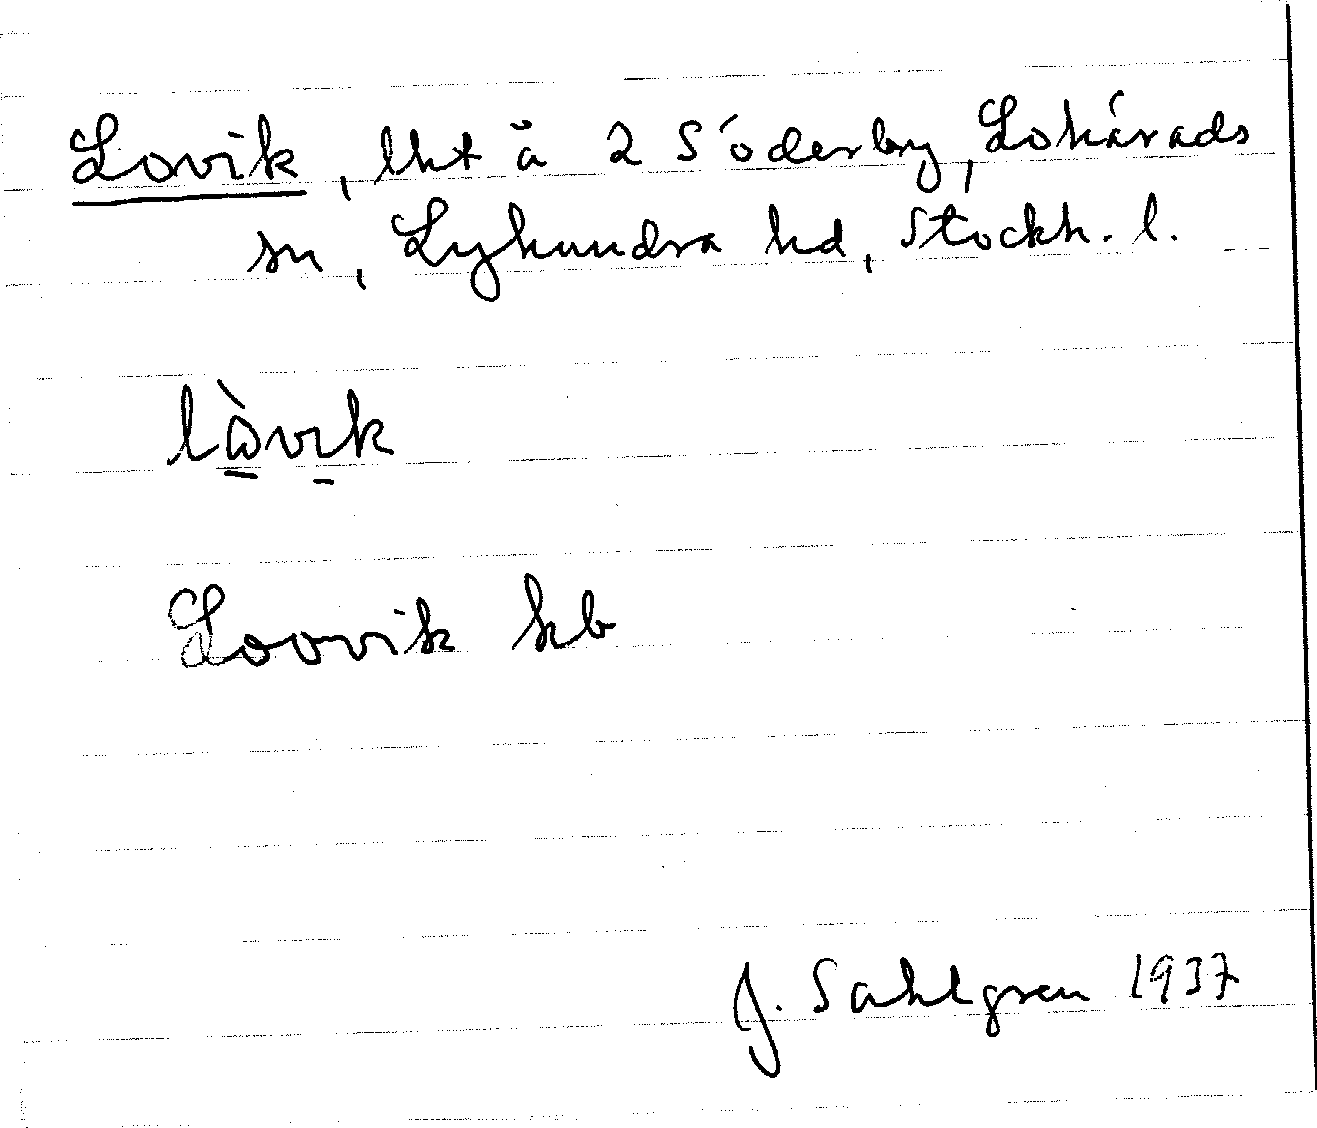 Lovik, lht å 2 Söderby, Lohärads
sn, Lyhundra hd, Stockh. l.
lὼ̲vi̲k
Loovik kb
J. Sahlgren 1937